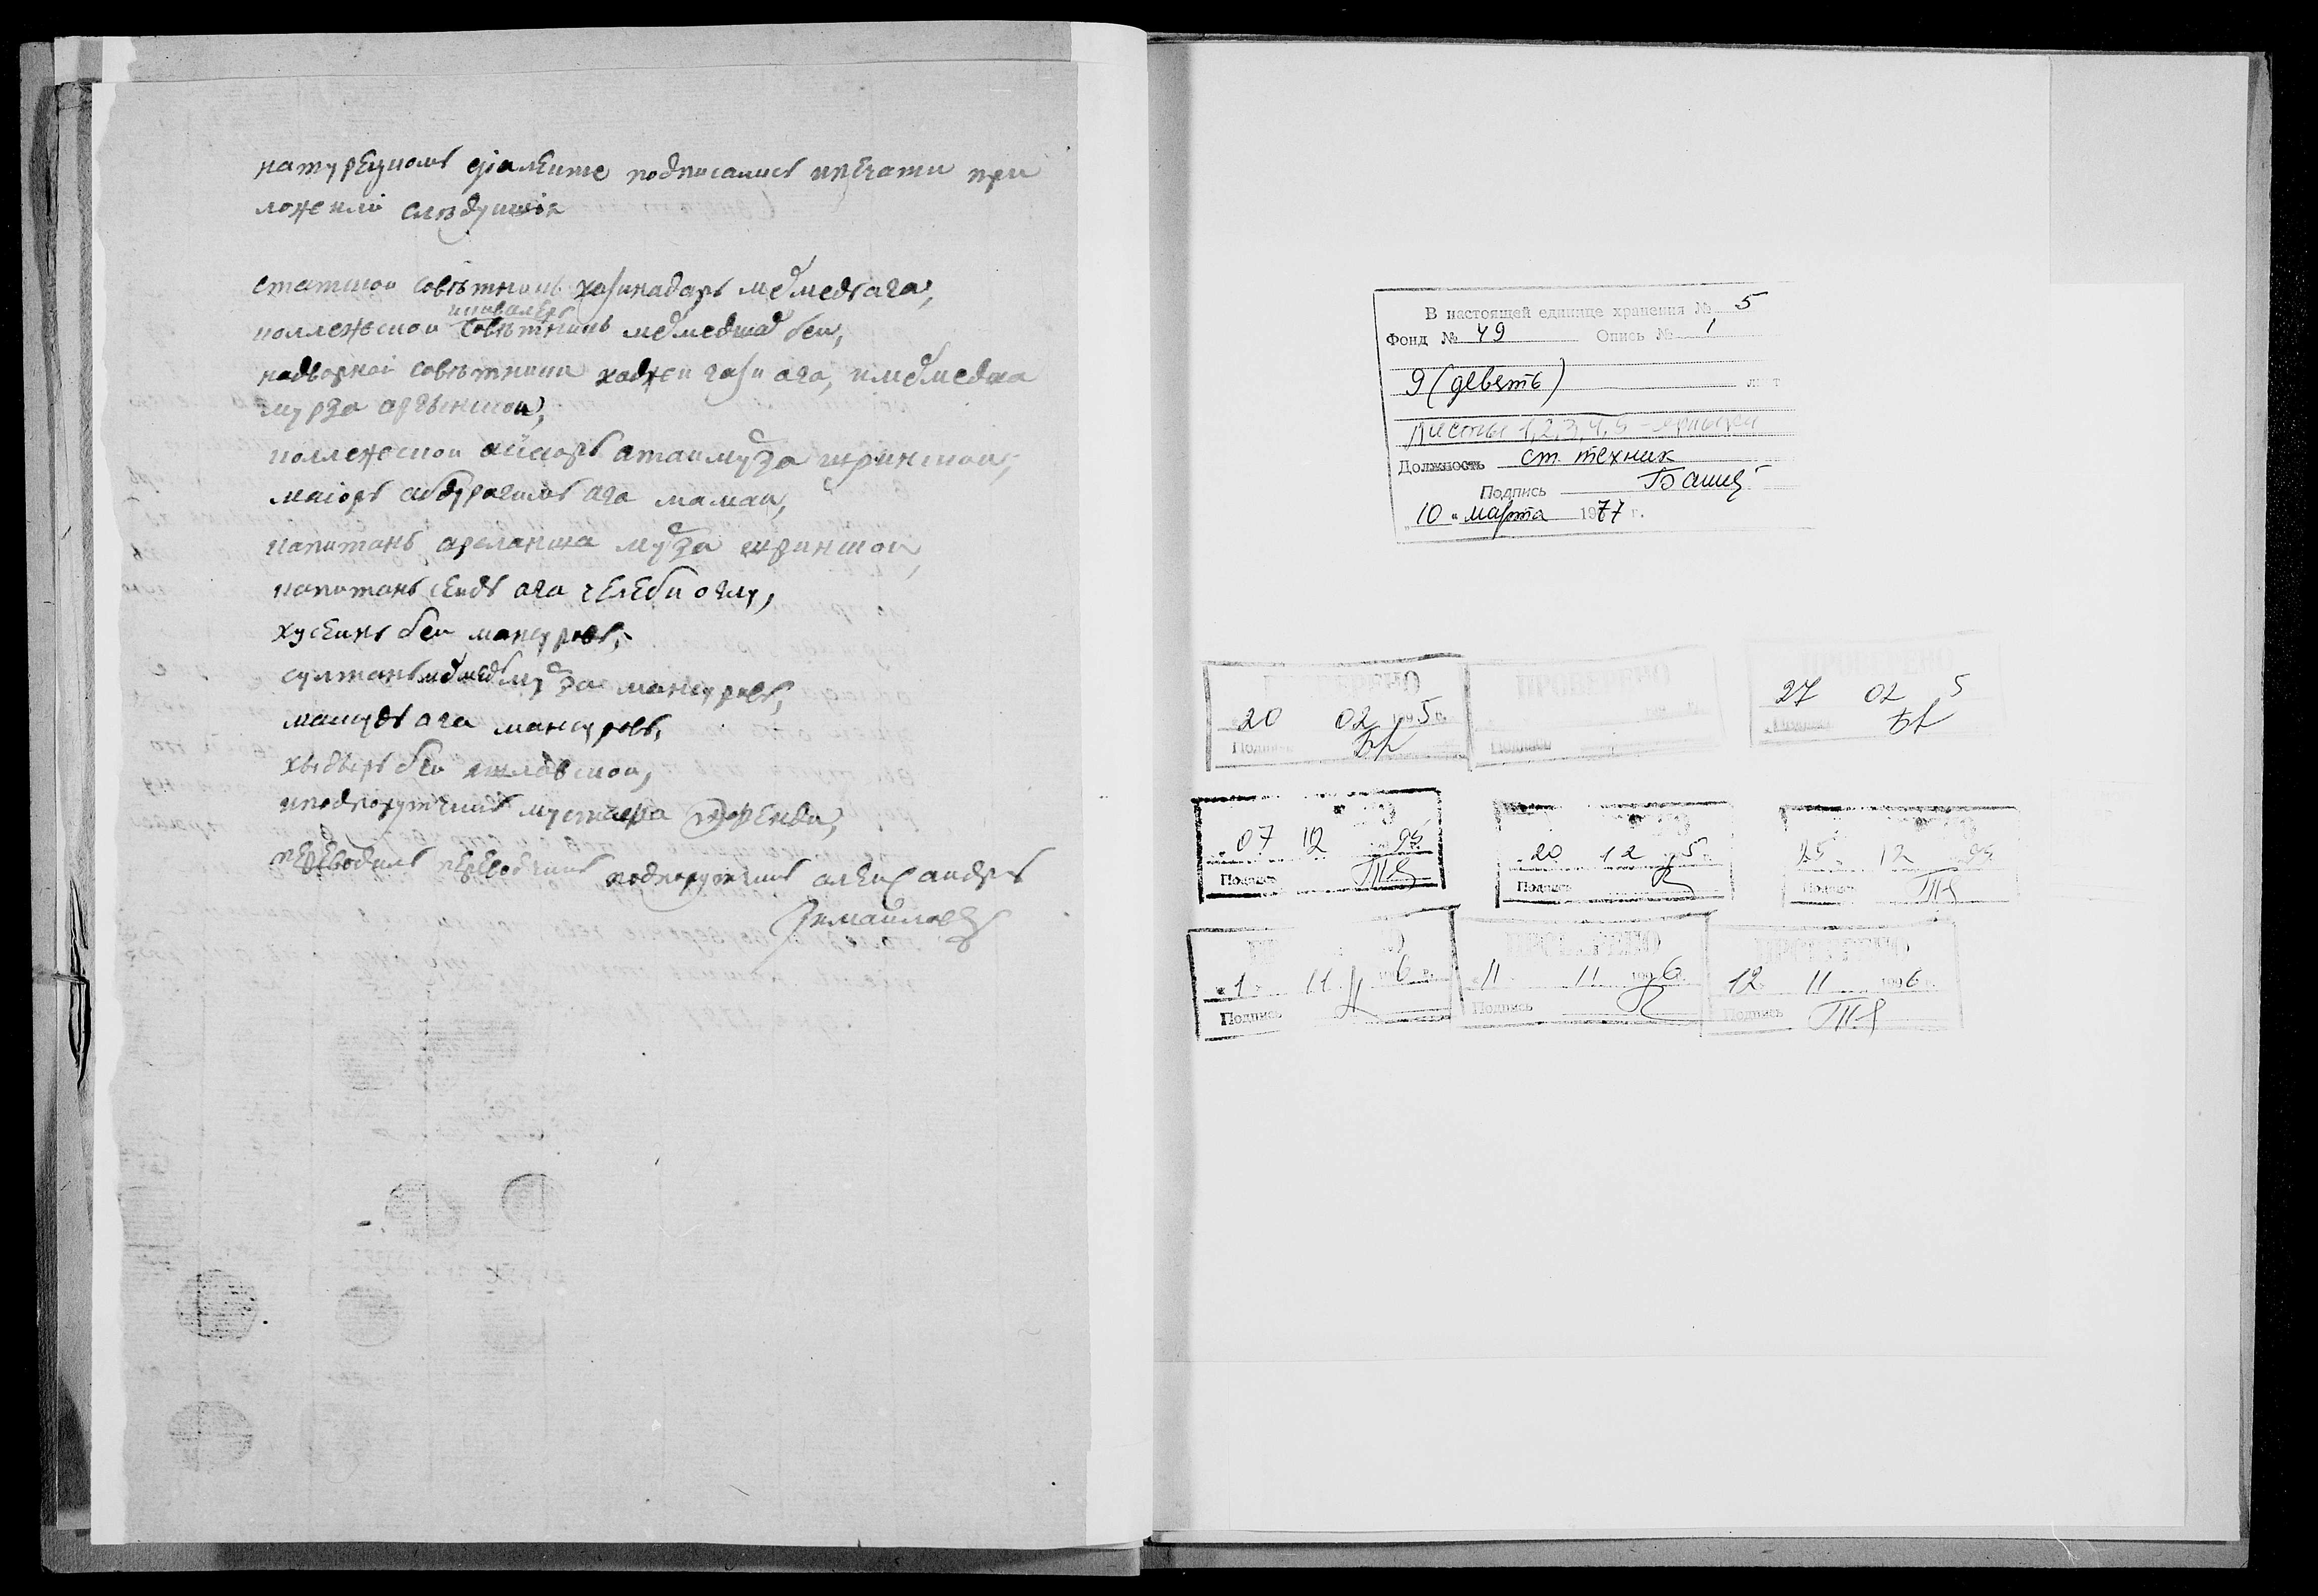 на турецкомъ діалекте подписались и печати при
ложены слѣдующія
статской совѣтникъ хазинадаръ мемедъ ага,
коллежской совѣтникъ
и кавалеръ
мемедша беи,
надворнои совѣтники хаджи гази ага, и мемедша
мурза аргынской,
коллежской асесоръ атаи мурза ширинской,
маіоръ абдурагимъ ага мамаи,
капитанъ арсланша мурза ширинской,
капитанъ сеидъ ага челеби оглу,
хусеинъ беи мансуровъ,
султанъ мемедъ мурза мансуровъ,
масудъ ага мансуровъ,
хыдыръ беи
и подпорутчикъ мустафа эфенди,
переводилъ переводчикъ подпорутчикъ александръ
Измаиловъ
В настоящей единице хранения № 5
Фонд № 49 Опись № 1
9 (девять) лист
Листы 1, 2, 3, 4, 5 -
Должность ст. техник
Подпись
„10“ марта 1977 г.
ПРОВЕРЕНО
20 02 1995 г.
Подпись
ПРОВЕРЕНО
Подпись
ПРОВЕРЕНО
27 02 5
Подпись
07 12 95
Подпись
20 12 5
Подпись
25 12 95
Подпись
1 11 1996 г.
Подпись
ПРОВЕРЕНО
11 11 1996 г.
Подпись
ПРОВЕРЕНО
12 11 1996 г.
Подпись